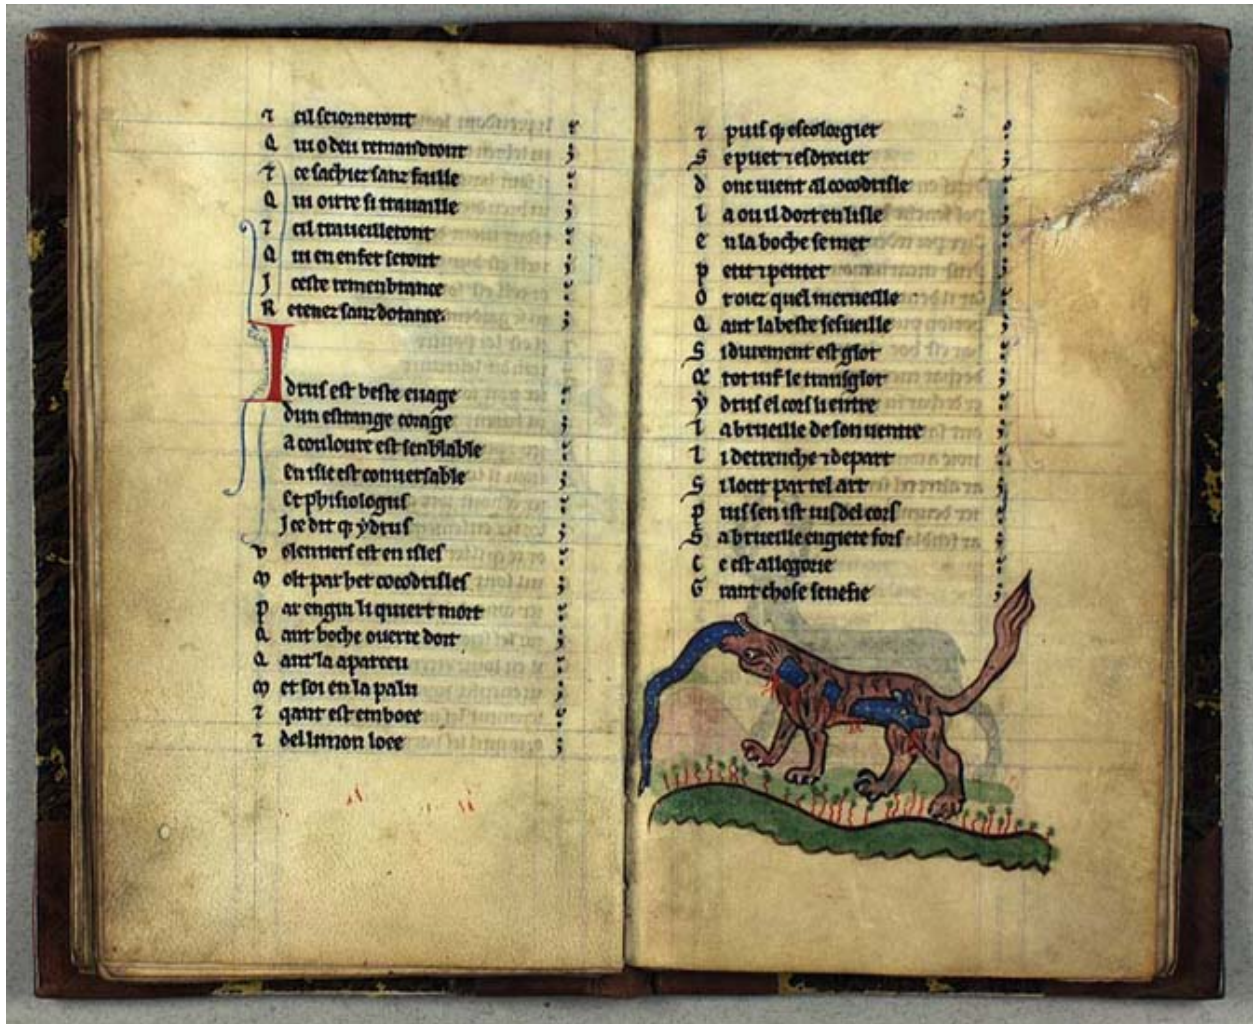 ⁊ cil seiorneront
Q ui o deu remandront
⁊ ce sachiez sanz faille
Q ui oirre si trauaille
⁊ cil traueilleront
Q ui en enfer seront
J ceste remenbrance
R etenez sanz dotance.
Idrus est beste euage
dun estrange corage
a couloure est senblable
En isle est conuersable
Et phisiologus
Jce dit q ydrus
v olentiers est en isles
M olt par het cocodrilles
p ar engin li quiert mort
Q ant boche ouerte dort
Q ant la aparceu
M et soi en la palu
⁊ qant est emboee
⁊ del limon loee
⁊ puis q escolorgier
S e puet ⁊ esdrecier
d onc uient al cocodrille
l a ou il dort en lisle
e n la boche se met
p etit ⁊ petitet
O r oez quel merueille
Q ant la beste sesueille
S i durement est glot
Q tot uif le transglot
ydrus el cors li entre
l a brueille de son uentre
l i detrenche ⁊ depart
S i locit par tel art
p uis sen ist uis del cors
S a brueille engiete fors
C e est allegorie
G rant chose senefie